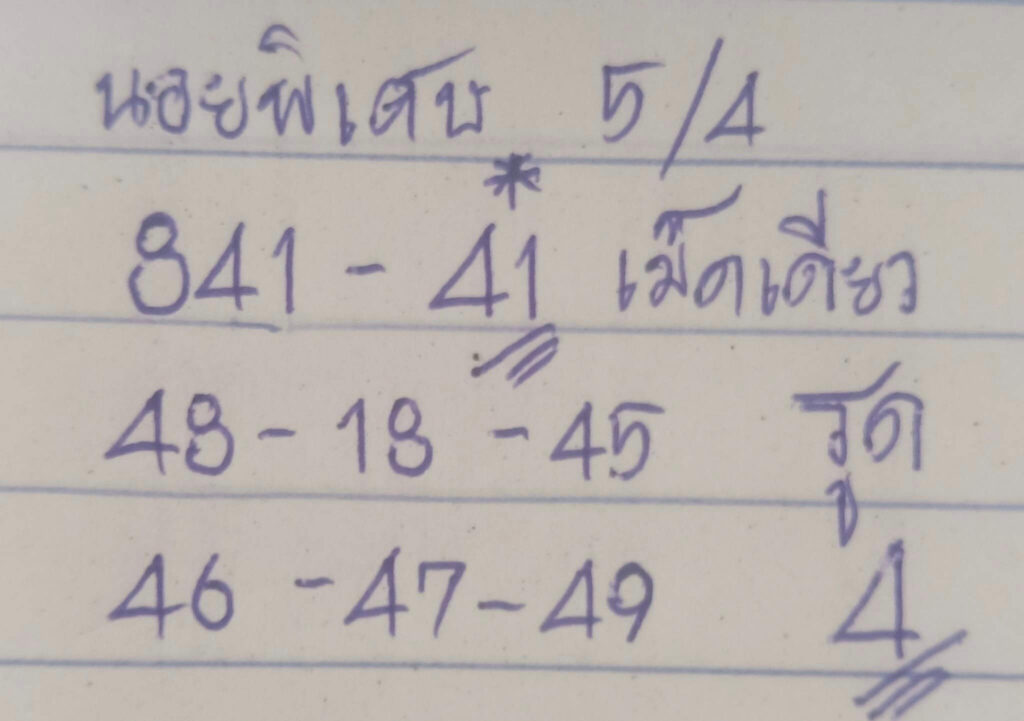 นอยพิเศษ 5/4
841 - 41* เม็ดเดียว
48 - 18 - 45 รูด
46 - 47 - 49 4